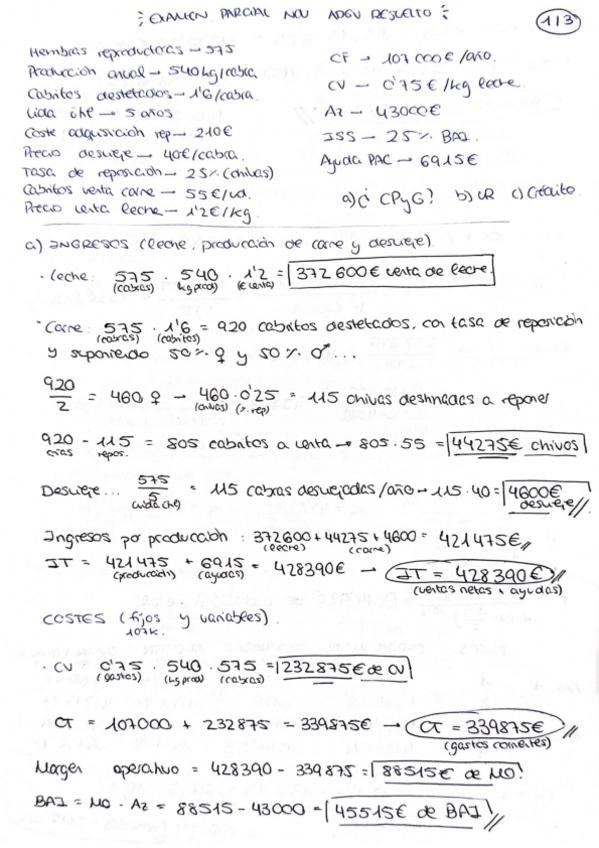 ¡EXAMEN PARCIAL NOV ADGV RESUELTO!
1/3
Hembras reproductoras → 575
Producción anual → 540 kg/cabra
Cabritos destetados → 1'6/cabra.
Vida útil → 5 años
Coste adquisición rep → 210€
Precio desvieje → 40€/cabra.
Tasa de reposición → 25% (chivas)
Cabritos venta carne → 55€/ud.
Precio venta leche → 1'2€/kg.
CF → 107 000€/año.
CV → 0'75€/kg leche.
Az → 43000€
ISS → 25% BAI.
Ayuda PAC → 6915€
a) ¿CPyG? b) UR c) Crédito.
a) INGRESOS (leche, producción de carne y desvieje)
· leche: 575 · 540 · 1'2 = 372 600€ venta de leche.
(cabras) (kg prod) (€ venta)
· Carne: 575 · 1'6 = 920 cabritos destetados, con tasa de reposición
(cabras) (cabritos)
y suponiendo 50% ♀ y 50% ♂...
920/2 = 460 ♀ → 460 · 0'25 = 115 chivas destinadas a reponer
(chivas) (% rep)
920 - 115 = 805 cabritos a venta → 805 · 55 = 44275€ chivos
crías repos.
Desvieje... 575/5 = 115 cabras desviejadas/año → 115 · 40 = 4600€ desvieje
(vida útil)
Ingresos por producción: 372600 + 44275 + 4600 = 421475€
(leche) (carne)
IT = 421475 + 6915 = 428390€ → IT = 428390€
(producción) (ayudas) (ventas netas + ayudas)
COSTES (fijos y variables).
107k.
· CV 0'75 · 540 · 575 = 232875€ de CV
(gastos) (kg prod) (cabras)
CT = 107000 + 232875 = 339875€ → CT = 339875€
(gastos corrientes)
Margen operativo = 428390 - 339875 = 88515€ de MO!
BAI = MO - Az = 88515 - 43000 = 45515€ de BAI